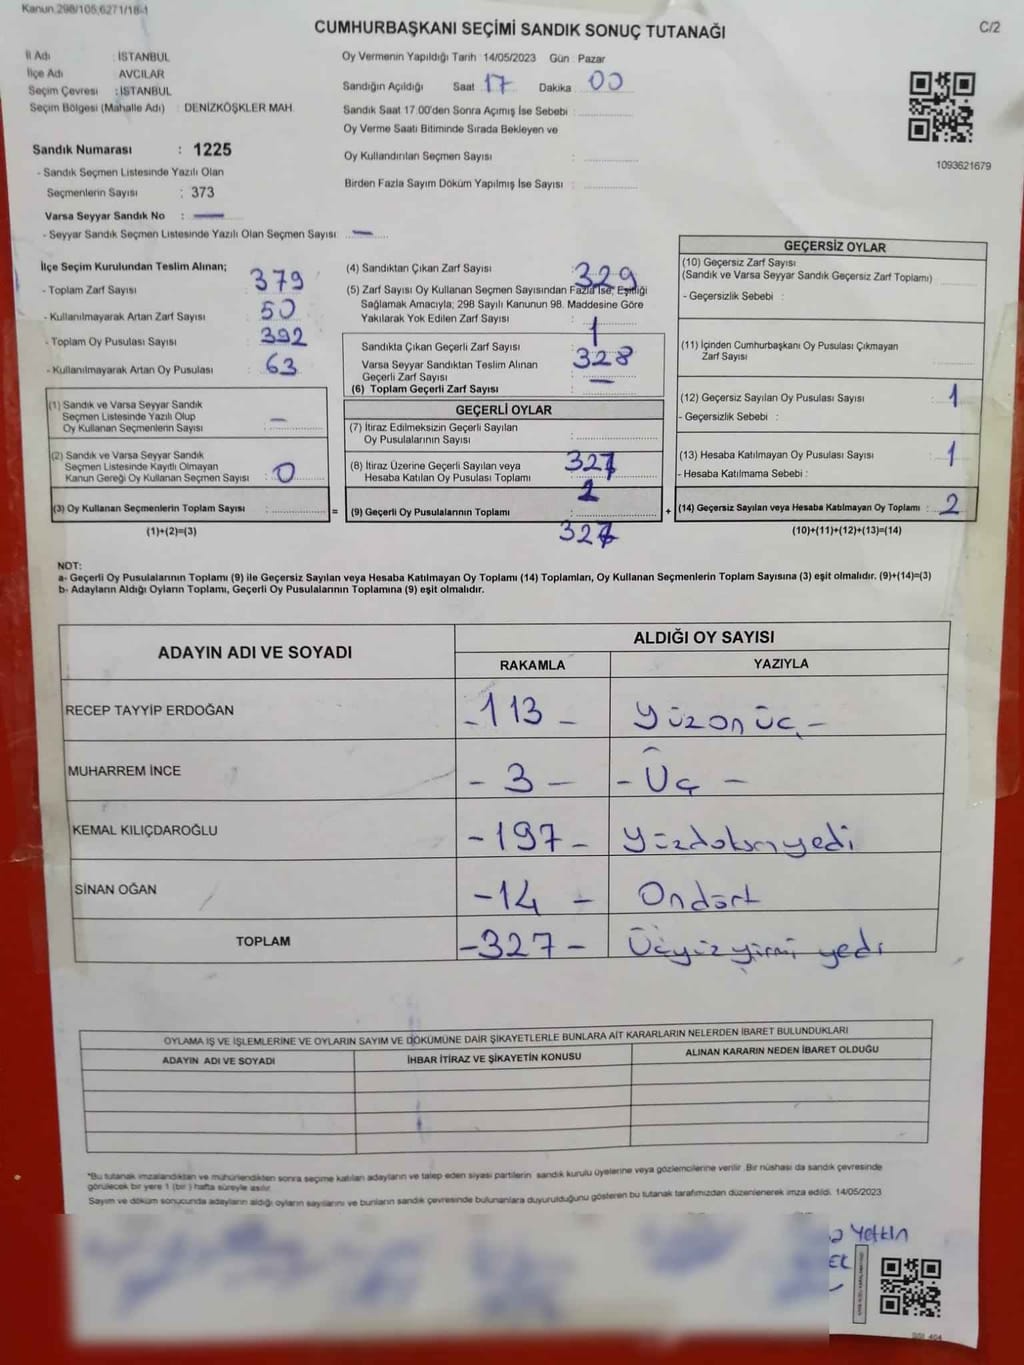 Kanun 298/105,6271/18-1
CUMHURBAŞKANI SEÇİMİ SANDIK SONUÇ TUTANAĞI
C/2
İl Adı : İSTANBUL
İlçe Adı AVCILAR
Seçim Çevresi : İSTANBUL
Seçim Bölgesi (Mahalle Adı) : DENİZKÖŞKLER MAH.
Oy Vermenin Yapıldığı Tarih 14/05/2023 Gün Pazar
Sandığın Açıldığı Saat 17 Dakika 00
Sandık Saat 17.00'den Sonra Açımış İse Sebebi :
Oy Verme Saati Bitiminde Sırada Bekleyen ve
Oy Kullandırılan Seçmen Sayısı :
Birden Fazla Sayım Döküm Yapılmış İse Sayısı :
1093621679
Sandık Numarası : 1225
- Sandık Seçmen Listesinde Yazılı Olan
Seçmenlerin Sayısı : 373
Varsa Seyyar Sandık No : —
- Seyyar Sandık Seçmen Listesinde Yazılı Olan Seçmen Sayısı: —
İlçe Seçim Kurulundan Teslim Alınan;
- Toplam Zarf Sayısı 379
- Kullanılmayarak Artan Zarf Sayısı 50
- Toplam Oy Pusulası Sayısı 392
- Kullanılmayarak Artan Oy Pusulası 63
(1) Sandık ve Varsa Seyyar Sandık
Seçmen Listesinde Yazılı Olup
Oy Kullanan Seçmenlerin Sayısı : —
(2) Sandık ve Varsa Seyyar Sandık
Seçmen Listesinde Kayıtlı Olmayan
Kanun Gereği Oy Kullanan Seçmen Sayısı : 0
(3) Oy Kullanan Seçmenlerin Toplam Sayısı : =
(1)+(2)=(3)
(4) Sandıktan Çıkan Zarf Sayısı 329
(5) Zarf Sayısı Oy Kullanan Seçmen Sayısından Fazla İse, Eşitliği
Sağlamak Amacıyla; 298 Sayılı Kanunun 98. Maddesine Göre
Yakılarak Yok Edilen Zarf Sayısı : 1
Sandıkta Çıkan Geçerli Zarf Sayısı : 328
Varsa Seyyar Sandıktan Teslim Alınan
Geçerli Zarf Sayısı : —
(6) Toplam Geçerli Zarf Sayısı :
GEÇERLİ OYLAR
(7) İtiraz Edilmeksizin Geçerli Sayılan
Oy Pusulalarının Sayısı : 327
(8) İtiraz Üzerine Geçerli Sayılan veya
Hesaba Katılan Oy Pusulası Toplamı :
(9) Geçerli Oy Pusulalarının Toplamı : +
GEÇERSİZ OYLAR
(10) Geçersiz Zarf Sayısı
(Sandık ve Varsa Seyyar Sandık Geçersiz Zarf Toplamı)
- Geçersizlik Sebebi :
(11) İçinden Cumhurbaşkanı Oy Pusulası Çıkmayan
Zarf Sayısı
(12) Geçersiz Sayılan Oy Pusulası Sayısı : 1
- Geçersizlik Sebebi :
(13) Hesaba Katılmayan Oy Pusulası Sayısı : 1
- Hesaba Katılmama Sebebi :
(14) Geçersiz Sayılan veya Hesaba Katılmayan Oy Toplamı : 2
(10)+(11)+(12)+(13)=(14)
NOT:
a- Geçerli Oy Pusulalarının Toplamı (9) ile Geçersiz Sayılan veya Hesaba Katılmayan Oy Toplamı (14) Toplamları, Oy Kullanan Seçmenlerin Toplam Sayısına (3) eşit olmalıdır. (9)+(14)=(3)
b- Adayların Aldığı Oyların Toplamı, Geçerli Oy Pusulalarının Toplamına (9) eşit olmalıdır.
ADAYIN ADI VE SOYADI
ALDIĞI OY SAYISI
RAKAMLA YAZIYLA
RECEP TAYYİP ERDOĞAN - 113 - Yüzonüç -
MUHARREM İNCE - 3 - - Üç -
KEMAL KILIÇDAROĞLU - 197 - Yüzdoksanyedi
SİNAN OĞAN - 14 - Ondört
TOPLAM - 327 - Üçyüzyirmi yedi
OYLAMA İŞ VE İŞLEMLERİNE VE OYLARIN SAYIM VE DÖKÜMÜNE DAİR ŞİKAYETLERLE BUNLARA AİT KARARLARIN NELERDEN İBARET BULUNDUKLARI
ADAYIN ADI VE SOYADI İHBAR İTİRAZ VE ŞİKAYETİN KONUSU ALINAN KARARIN NEDEN İBARET OLDUĞU
*Bu tutanak imzalandıktan ve mühürlendikten sonra seçime katılan adayların ve talep eden siyasi partilerin sandık kurulu üyelerine veya gözlemcilerine verilir. Bir nüshası da sandık çevresinde
görülecek bir yere 1 (bir) hafta süreyle asılır.
Sayım ve döküm sonucunda adayların aldığı oyların sayılarını ve bunların sandık çevresinde bulunanlara duyurulduğunu gösteren bu tutanak tarafımızdan düzenlenerek imza edildi. 14/05/2023
Yetkin